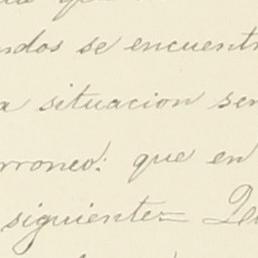 que
ndos se encuentr
a situacion sen
rroneo: que en
siguiente=